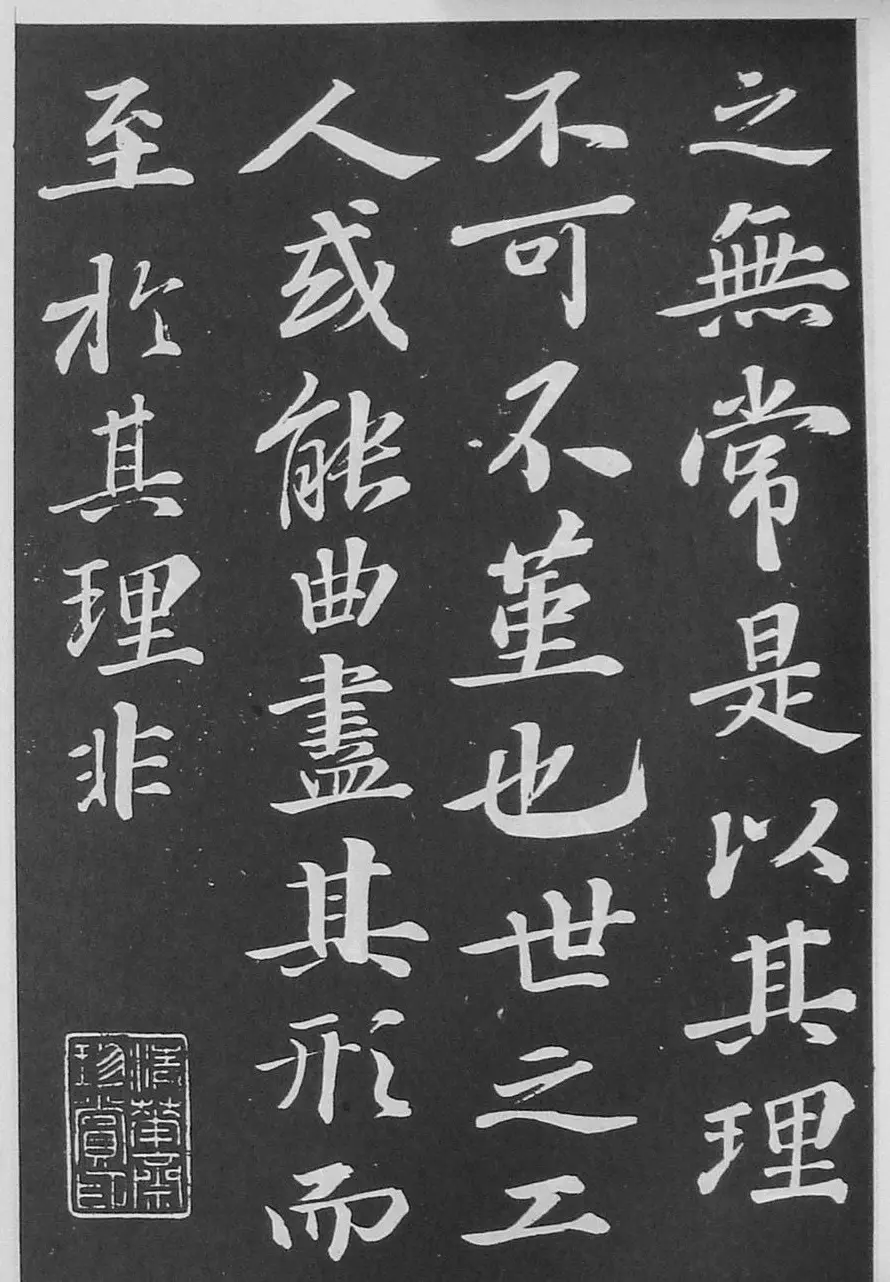 之無常是以其理
不可不堇也世之工
人或能曲盡其形而
至於其理非
珍賞印